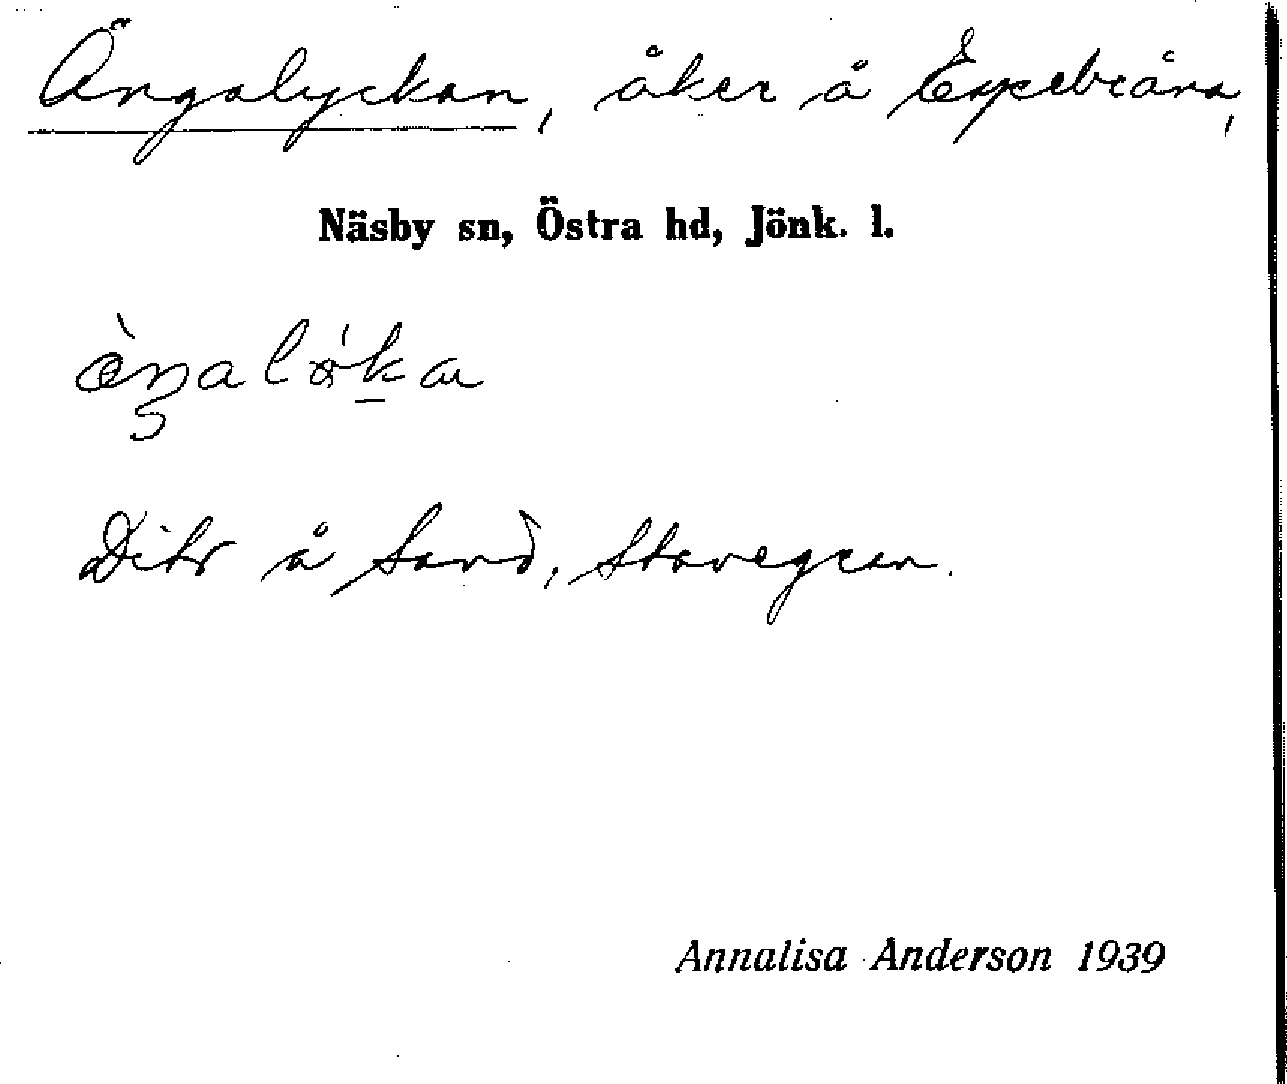 Ängalyckan, åker å Espebråna,
Näsby sn, Östra hd, Jönk. l.
Dito å Sand, Stavegren.
Annalisa Anderson 1939